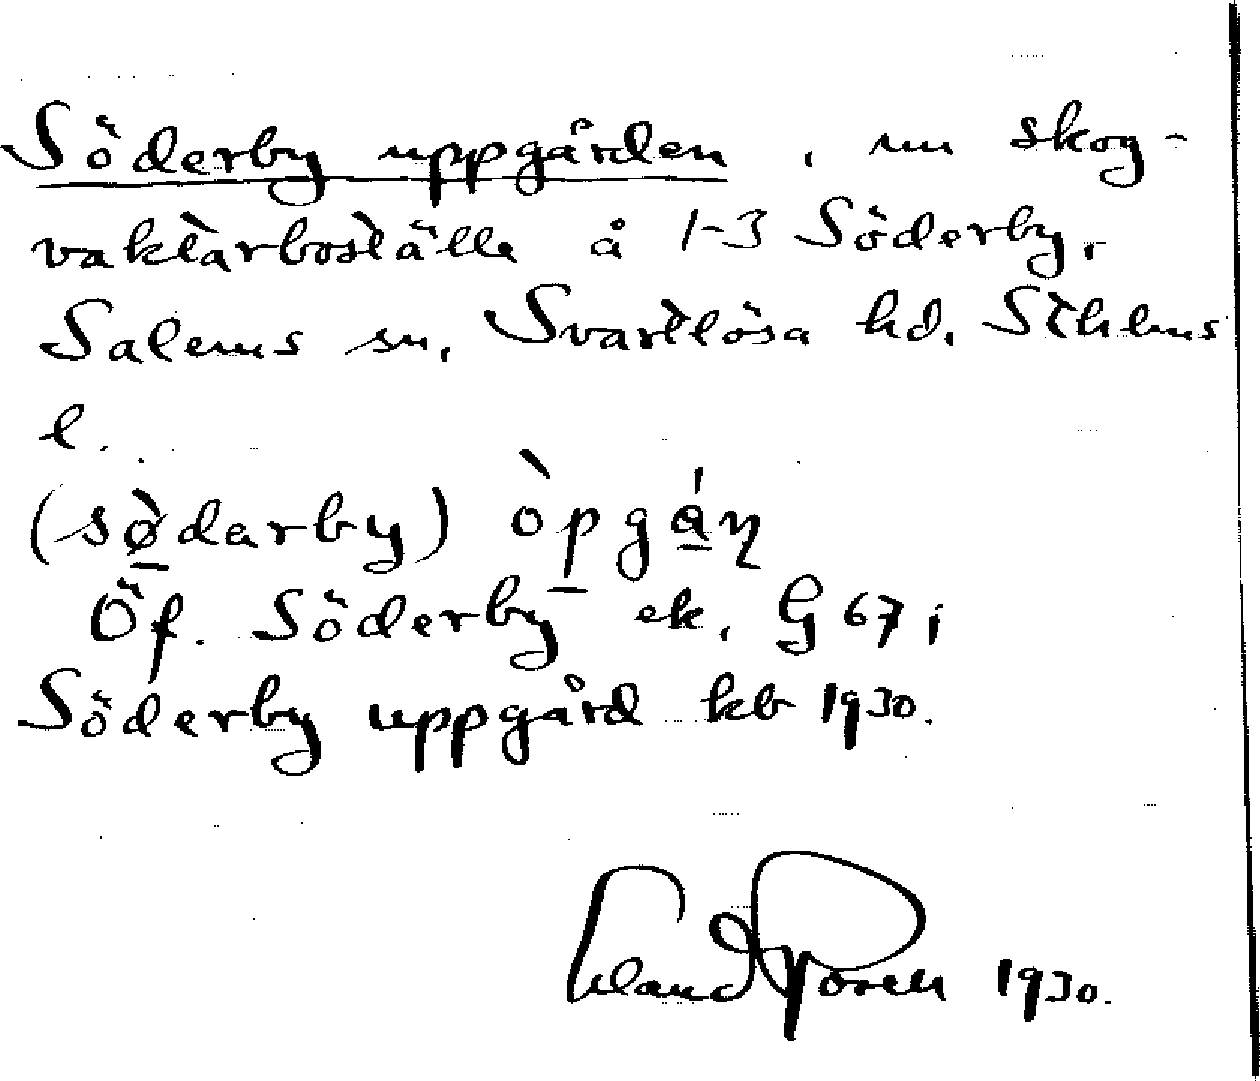 Söderby uppgården, nu skog-
vaktarboställe å 1-3 Söderby,
Salems sn, Svartlösa hd. Sthlms
l.
(sø̀darby) òpgán
Öf. Söderby ek. G 67 i
Söderby uppgård kb 1930.
1930.